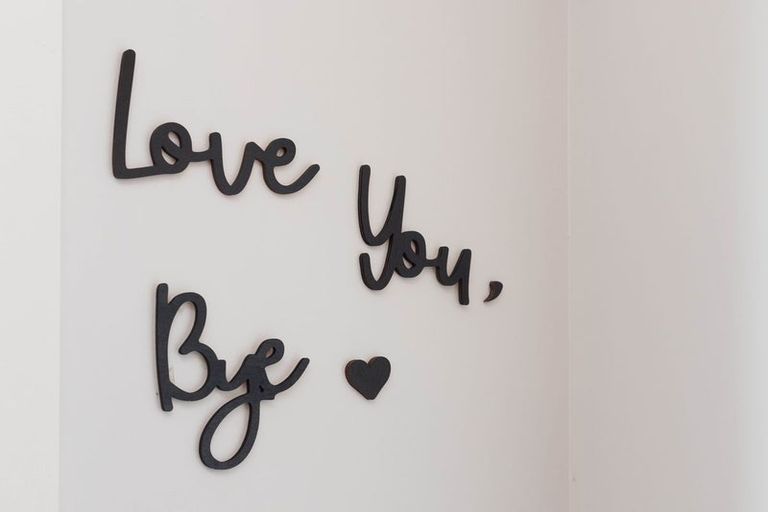 Love
You,
Bye